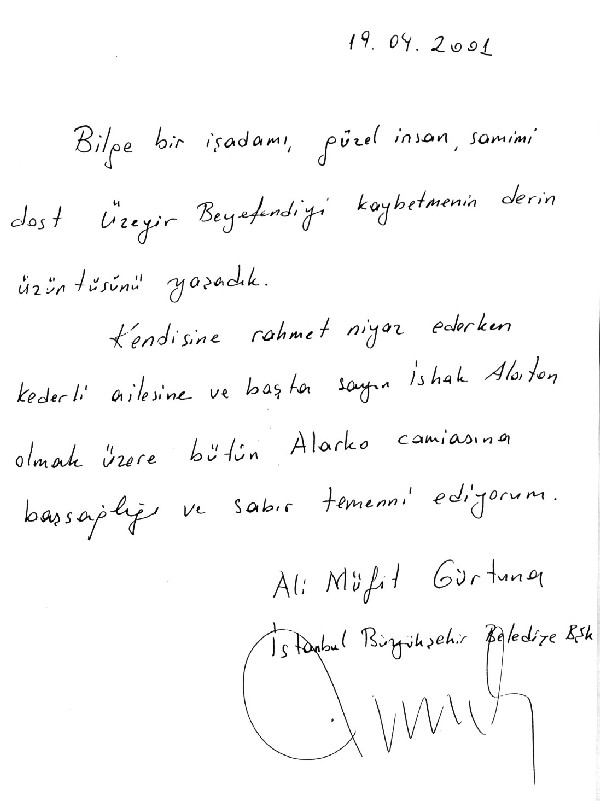 19.04.2001
Bilge bir işadamı, güzel insan, samimi
dost Üzeyir Beyefendiyi kaybetmenin derin
üzüntüsünü yaşadık.
Kendisine rahmet niyaz ederken
kederli ailesine ve başta sayın İshak Alaton
olmak üzere bütün Alarko camiasına
başsağlığı ve sabır temenni ediyorum.
Ali Müfit Gürtuna
İstanbul Büyükşehir Belediye Bşk